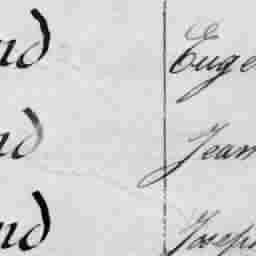 nd Euge
nd Jean
nd Joseph